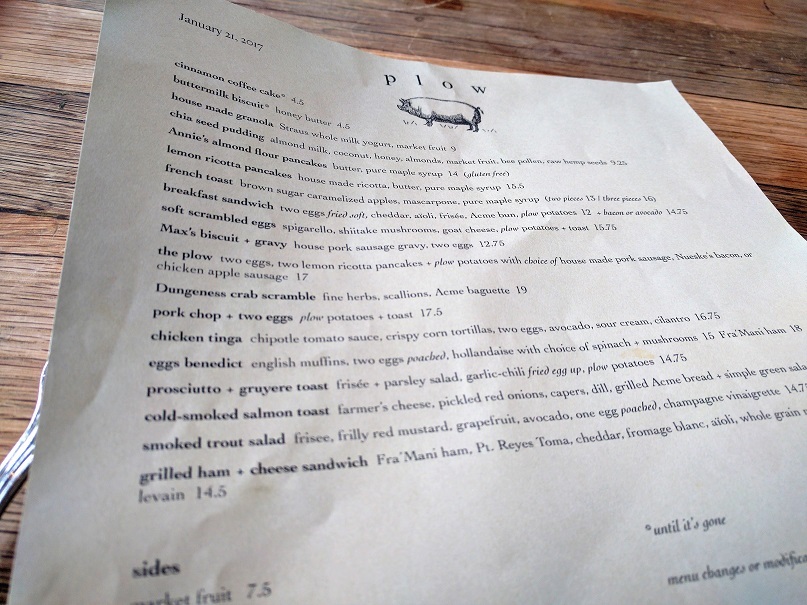 January 21, 2017
plow
cinnamon coffee cake* 4.5
buttermilk biscuit* honey butter 4.5
house made granola Straus whole milk yogurt, market fruit 9
chia seed pudding almond milk, coconut, honey, almonds, market fruit, bee pollen, raw hemp seeds 9.25
Annie's almond flour pancakes butter, pure maple syrup 14 (gluten free)
lemon ricotta pancakes house made ricotta, butter, pure maple syrup 15.5
french toast brown sugar caramelized apples, mascarpone, pure maple syrup (two pieces 13 / three pieces 16)
breakfast sandwich two eggs fried soft, cheddar, aïoli, frisée, Acme bun, plow potatoes 12 + bacon or avocado 14.75
soft scrambled eggs spigarello, shiitake mushrooms, goat cheese, plow potatoes + toast 15.75
Max's biscuit + gravy house pork sausage gravy, two eggs 12.75
the plow two eggs, two lemon ricotta pancakes + plow potatoes with choice of house made pork sausage, Nueske's bacon, or
chicken apple sausage 17
Dungeness crab scramble fine herbs, scallions, Acme baguette 19
pork chop + two eggs plow potatoes + toast 17.5
chicken tinga chipotle tomato sauce, crispy corn tortillas, two eggs, avocado, sour cream, cilantro 16.75
eggs benedict english muffins, two eggs poached, hollandaise with choice of spinach + mushrooms 15 Fra'Mani ham 18
prosciutto + gruyere toast frisée + parsley salad, garlic-chili fried egg up, plow potatoes 14.75
cold-smoked salmon toast farmer's cheese, pickled red onions, capers, dill, grilled Acme bread + simple green
smoked trout salad frisee, frilly red mustard, grapefruit, avocado, one egg poached, champagne vinaigrette 14.75
grilled ham + cheese sandwich Fra'Mani ham, Pt. Reyes Toma, cheddar, fromage blanc, aïoli, whole grain
levain 14.5
*until it's gone
sides
menu changes or
market fruit 7.5